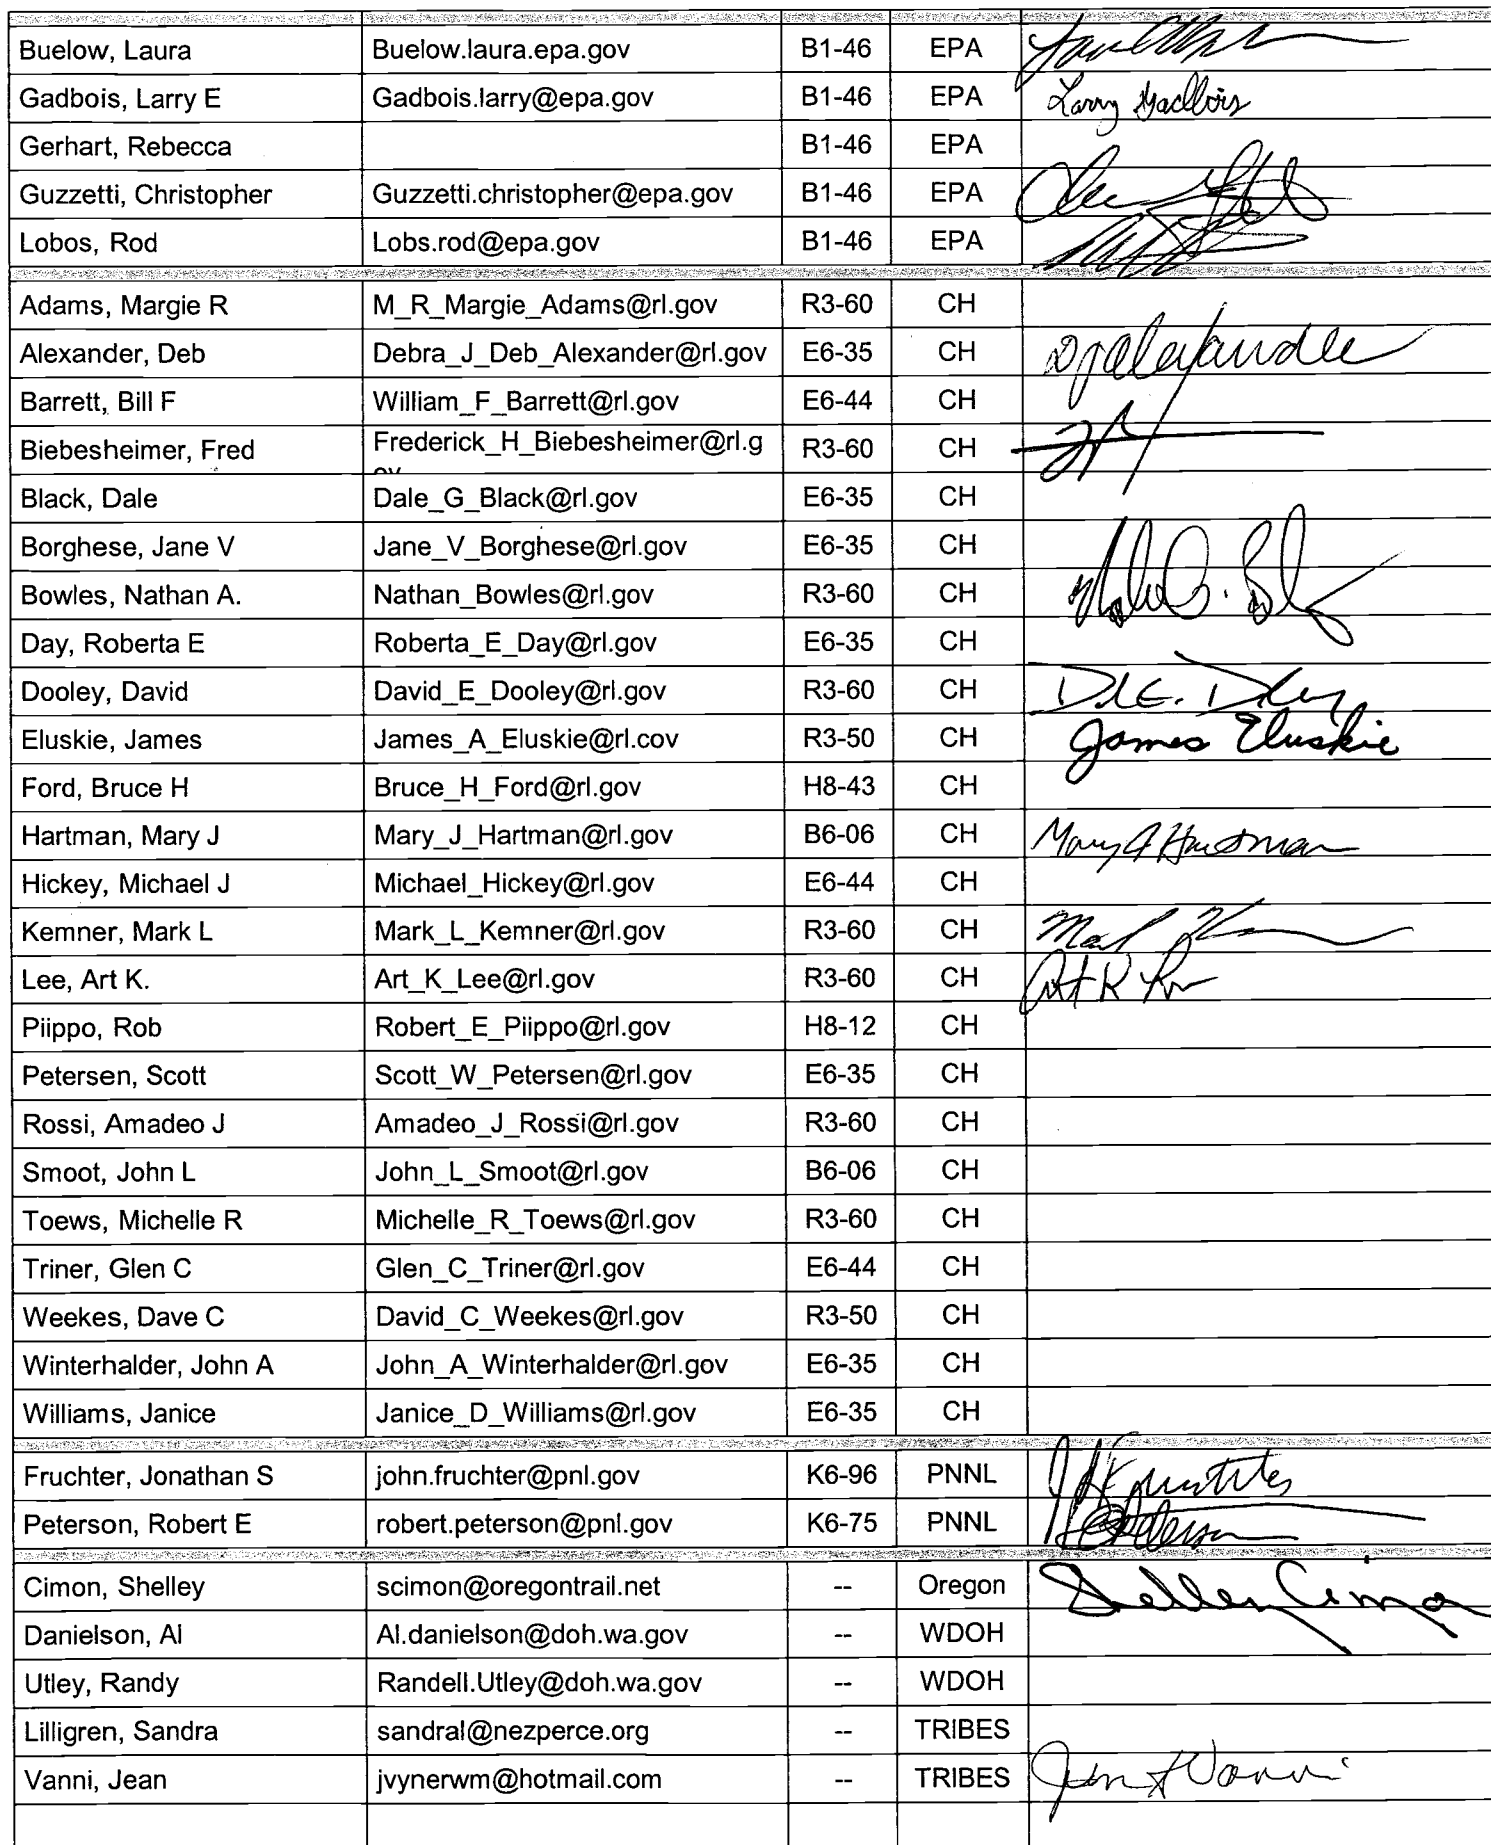 Buelow, Laura Buelow.laura.epa.gov B1-46 EPA
Gadbois, Larry E Gadbois.larry@epa.gov B1-46 EPA Larry Gadbois
Gerhart, Rebecca B1-46 EPA
Guzzetti, Christopher Guzzetti.christopher@epa.gov B1-46 EPA
Lobos, Rod Lobs.rod@epa.gov B1-46 EPA
Adams, Margie R M_R_Margie_Adams@rl.gov R3-60 CH
Alexander, Deb Debra_J_Deb_Alexander@rl.gov E6-35 CH DJAlexander
Barrett, Bill F William_F_Barrett@rl.gov E6-44 CH
Biebesheimer, Fred Frederick_H_Biebesheimer@rl.g R3-60 CH
ov
Black, Dale Dale_G_Black@rl.gov E6-35 CH
Borghese, Jane V Jane_V_Borghese@rl.gov E6-35 CH
Bowles, Nathan A. Nathan_Bowles@rl.gov R3-60 CH
Day, Roberta E Roberta_E_Day@rl.gov E6-35 CH
Dooley, David David_E_Dooley@rl.gov R3-60 CH
Eluskie, James James_A_Eluskie@rl.cov R3-50 CH James Eluskie
Ford, Bruce H Bruce_H_Ford@rl.gov H8-43 CH
Hartman, Mary J Mary_J_Hartman@rl.gov B6-06 CH Mary J Hartman
Hickey, Michael J Michael_Hickey@rl.gov E6-44 CH
Kemner, Mark L Mark_L_Kemner@rl.gov R3-60 CH
Lee, Art K. Art_K_Lee@rl.gov R3-60 CH Art K Lee
Piippo, Rob Robert_E_Piippo@rl.gov H8-12 CH
Petersen, Scott Scott_W_Petersen@rl.gov E6-35 CH
Rossi, Amadeo J Amadeo_J_Rossi@rl.gov R3-60 CH
Smoot, John L John_L_Smoot@rl.gov B6-06 CH
Toews, Michelle R Michelle_R_Toews@rl.gov R3-60 CH
Triner, Glen C Glen_C_Triner@rl.gov E6-44 CH
Weekes, Dave C David_C_Weekes@rl.gov R3-50 CH
Winterhalder, John A John_A_Winterhalder@rl.gov E6-35 CH
Williams, Janice Janice_D_Williams@rl.gov E6-35 CH
Fruchter, Jonathan S john.fruchter@pnl.gov K6-96 PNNL
Peterson, Robert E robert.peterson@pnl.gov K6-75 PNNL
Cimon, Shelley scimon@oregontrail.net -- Oregon Shelley Cimon
Danielson, Al Al.danielson@doh.wa.gov -- WDOH
Utley, Randy Randell.Utley@doh.wa.gov -- WDOH
Lilligren, Sandra sandral@nezperce.org -- TRIBES
Vanni, Jean jvynerwm@hotmail.com -- TRIBES